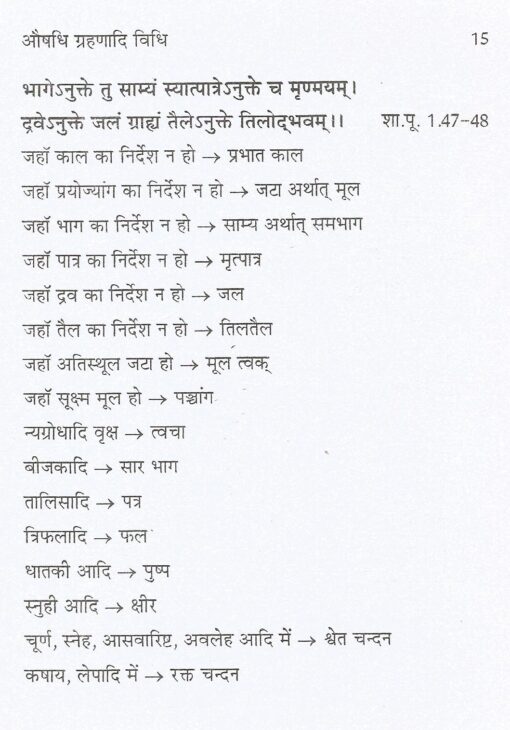 औषधि ग्रहणादि विधि 15
भागेऽनुक्ते तु साम्यं स्यात्पात्रेऽनुक्ते च मृण्मयम्।
द्रवेऽनुक्ते जलं ग्राह्यं तैलेऽनुक्ते तिलोद्भवम्।। शा.पू. 1.47-48
जहॉ काल का निर्देश न हो → प्रभात काल
जहॉ प्रयोज्यांग का निर्देश न हो → जटा अर्थात् मूल
जहॉ भाग का निर्देश न हो → साम्य अर्थात् समभाग
जहॉ पात्र का निर्देश न हो → मृत्पात्र
जहॉ द्रव का निर्देश न हो → जल
जहॉ तैल का निर्देश न हो → तिलतैल
जहॉ अतिस्थूल जटा हो → मूल त्वक्
जहॉ सूक्ष्म मूल हो → पञ्चांग
न्यग्रोधादि वृक्ष → त्वचा
बीजकादि → सार भाग
तालिसादि → पत्र
त्रिफलादि → फल
धातकी आदि → पुष्प
स्नुही आदि → क्षीर
चूर्ण, स्नेह, आसवारिष्ट, अवलेह आदि में → श्वेत चन्दन
कषाय, लेपादि में → रक्त चन्दन